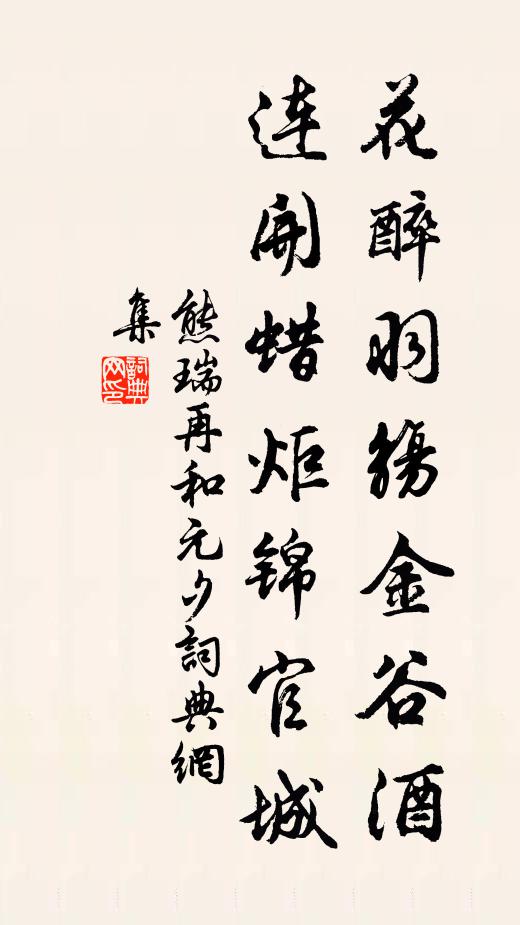 花醉羽觴金谷酒
連開蜡炬錦官城
熊瑞再和元夕詞典網
集
詞典
网印